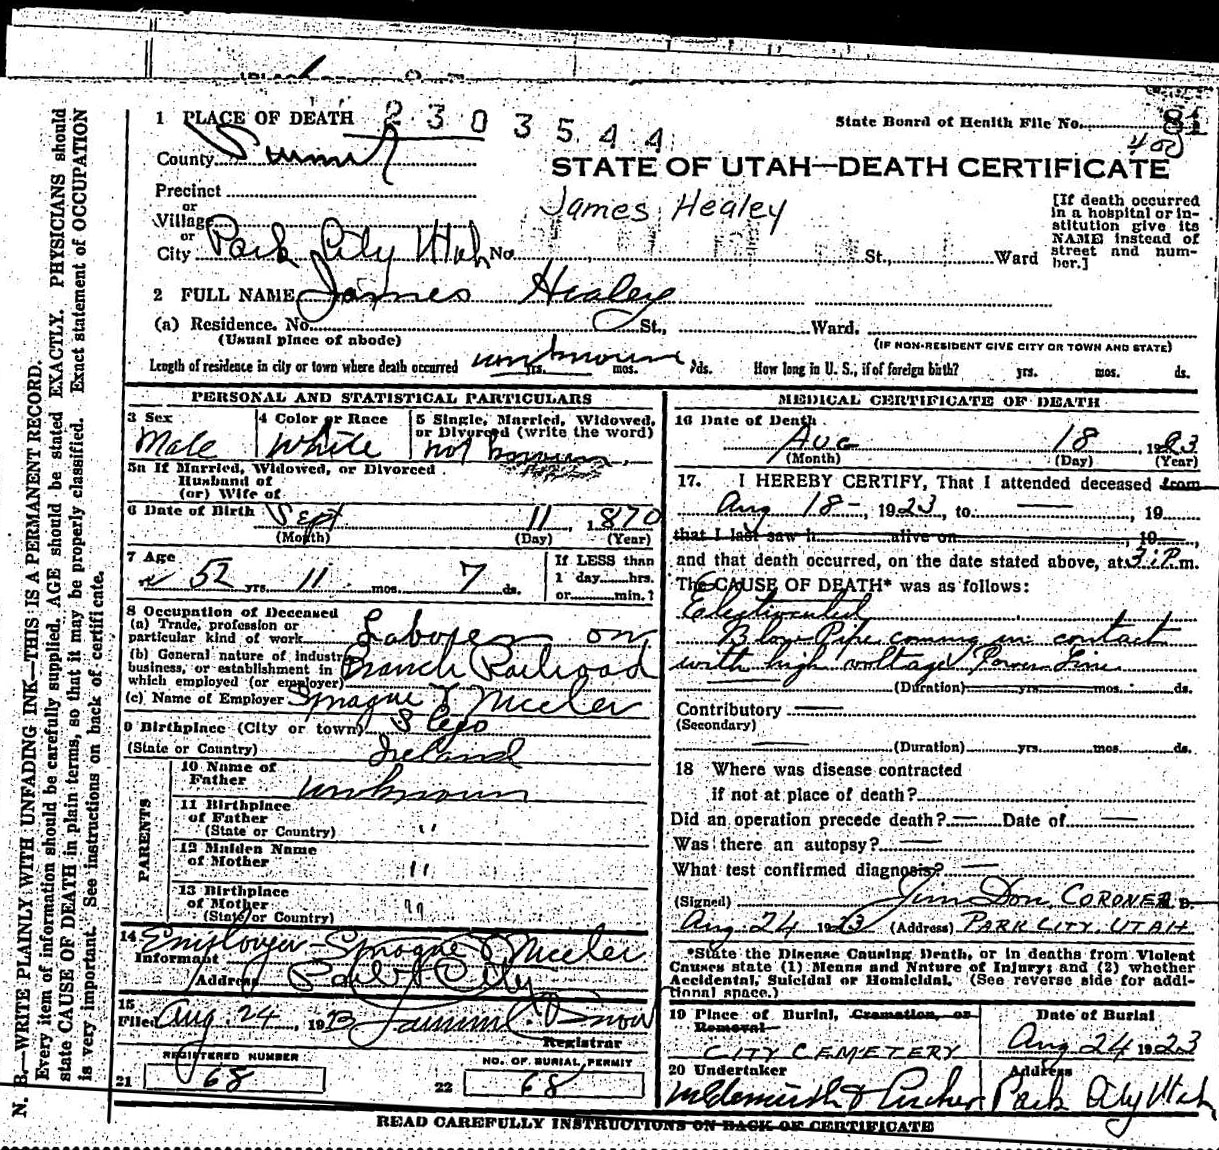 N. B.—WRITE PLAINLY WITH UNFADING INK—THIS IS A PERMANENT RECORD.
Every item of information should be carefully supplied. AGE should be stated EXACTLY. PHYSICIANS should
state CAUSE OF DEATH in plain terms, so that it may be properly classified. Exact statement of OCCUPATION
is very important. See instructions on back of certificate.
1 PLACE OF DEATH 2303544
State Board of Health File No. 81
400
County Summit
STATE OF UTAH—DEATH CERTIFICATE
Precinct
or
Village
or
City Park City Utah No. St., Ward
James Healey
[If death occurred
in a hospital or in-
stitution give its
NAME instead of
street and num-
ber.]
2 FULL NAME James Healey
(a) Residence. No. St., Ward.
(Usual place of abode)
(IF NON-RESIDENT GIVE CITY OR TOWN AND STATE)
Length of residence in city or town where death occurred unknown yrs. mos. ds. How long in U. S., if of foreign birth? yrs. mos. ds.
PERSONAL AND STATISTICAL PARTICULARS
3 Sex Male
4 Color or Race White
5 Single, Married, Widowed,
or Divorced (write the word)
not known
5a If Married, Widowed, or Divorced
Husband of
(or) Wife of
6 Date of Birth Sept 11, 1870
(Month) (Day) (Year)
7 Age
52 yrs. 11 mos. 7 ds.
If LESS than
1 day hrs.
or min.?
8 Occupation of Deceased
(a) Trade, profession or
particular kind of work Laborer on
(b) General nature of industry
business, or establishment in
which employed (or employer) Branch Railroad
(c) Name of Employer Sprague &
9 Birthplace (City or town) Sligo
(State or Country) Ireland
PARENTS
10 Name of
Father unknown
11 Birthplace
of Father
(State or Country) "
12 Maiden Name
of Mother "
13 Birthplace
of Mother
(State or Country) "
14 Employer - Sprague &
Informant
Address Park City
15
Filed Aug. 24, 1923 Snow
Registrar
REGISTERED NUMBER
21 68
NO. OF BURIAL PERMIT
22 68
MEDICAL CERTIFICATE OF DEATH
16 Date of Death
Aug 18, 1923
(Month) (Day) (Year)
17. I HEREBY CERTIFY, That I attended deceased from
Aug 18-, 1923, to —, 19
that I last saw h alive on , 19
and that death occurred, on the date stated above, at 3 P. m.
The CAUSE OF DEATH* was as follows:
Electrocuted
Blow Pipe coming in contact
with high voltage Power Line
(Duration) yrs. mos. ds.
Contributory —
(Secondary)
— (Duration) yrs. mos. ds.
18 Where was disease contracted
if not at place of death?
Did an operation precede death? — Date of —
Was there an autopsy? —
What test confirmed diagnosis? —
(Signed) Jim Don, CORONER
Aug. 24 1923 (Address) PARK CITY, UTAH
*State the Disease Causing Death, or in deaths from Violent
Causes state (1) Means and Nature of Injury; and (2) whether
Accidental, Suicidal or Homicidal. (See reverse side for addi-
tional space.)
19 Place of Burial, Cremation, or
Removal
CITY CEMETERY
Date of Burial
Aug 24 1923
20 Undertaker
Address
Park City Utah
READ CAREFULLY INSTRUCTIONS ON BACK OF CERTIFICATE